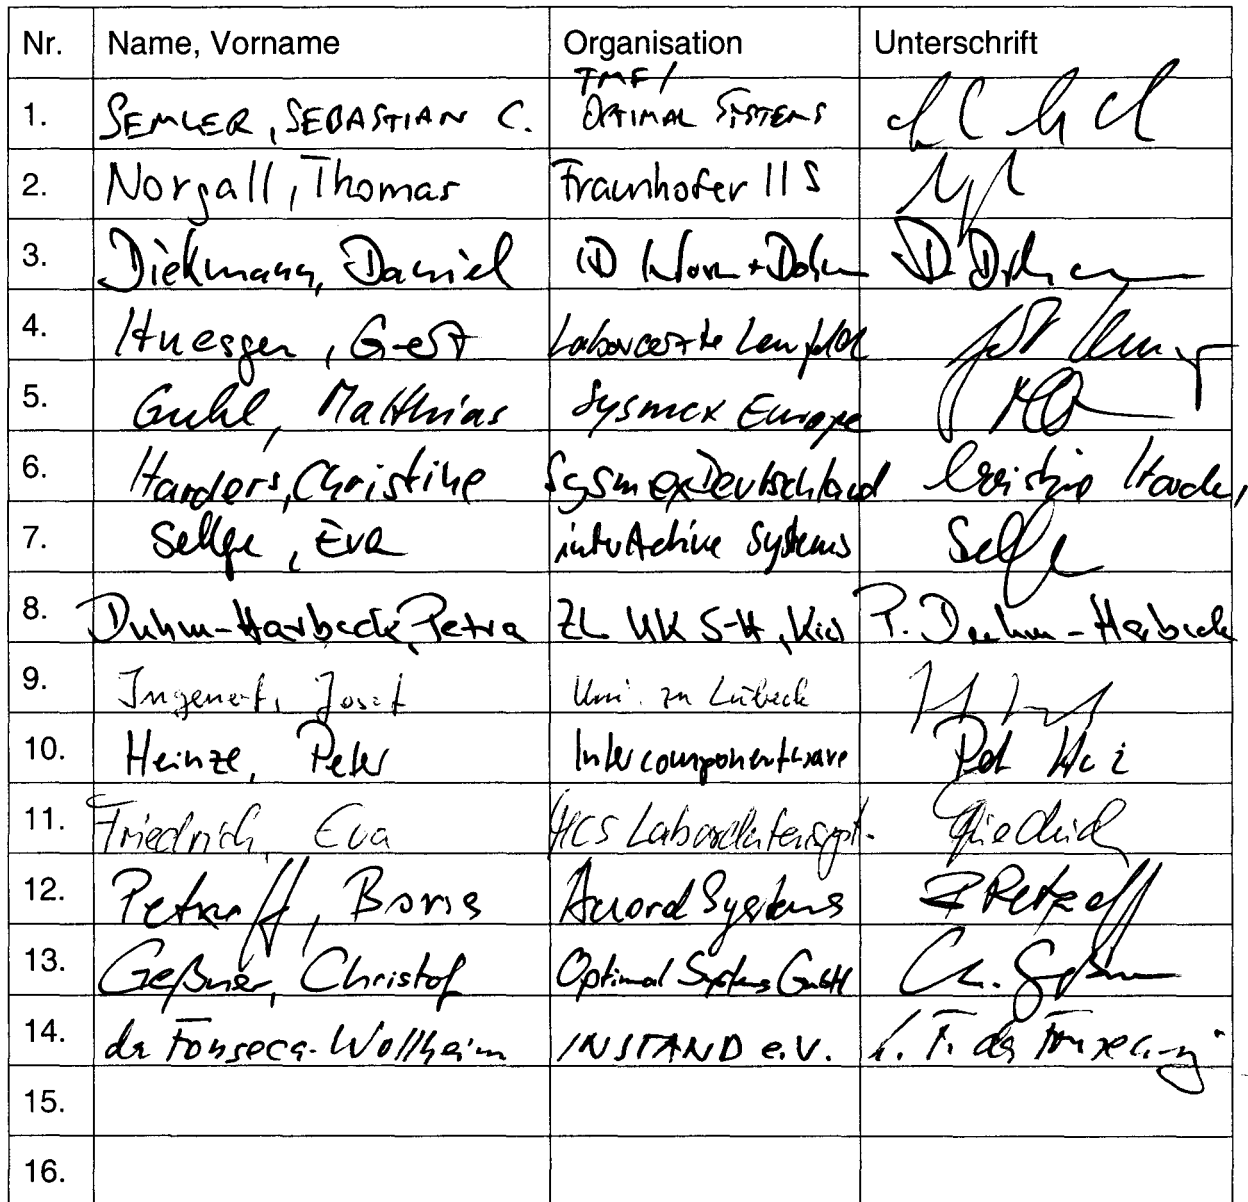 Nr. Name, Vorname Organisation Unterschrift
1. SEMLER, SEBASTIAN C. TMF / OPTIMAL SYSTEMS
2. Norgall, Thomas Fraunhofer IIS
3. Diekmann, Daniel ID D. D
4. Gest
5. Guhl, Matthias Sysmex Europe
6. Harders, Christine Sysmex Deutschland Christine Harders
7. Sellge, Eva interActive Systems Sellge
8. Duhm-Harbeck, Petra ZL UK S-H, Kiel P. Duhm-Harbeck
9. Ingenerf, Josef Uni. zu Lübeck
10. Heinze, Peter Intercomponentware
11. Friedrich, Eva HCS Labordatensyst. Friedrich
12. Petzoff, Boris Accord Systems B Petzoff
13. Geßner, Christof Optimal Systems GmbH Ch. Geßner
14. da Fonseca-Wollheim INSTAND e.V. F. da Fonseca
15.
16.